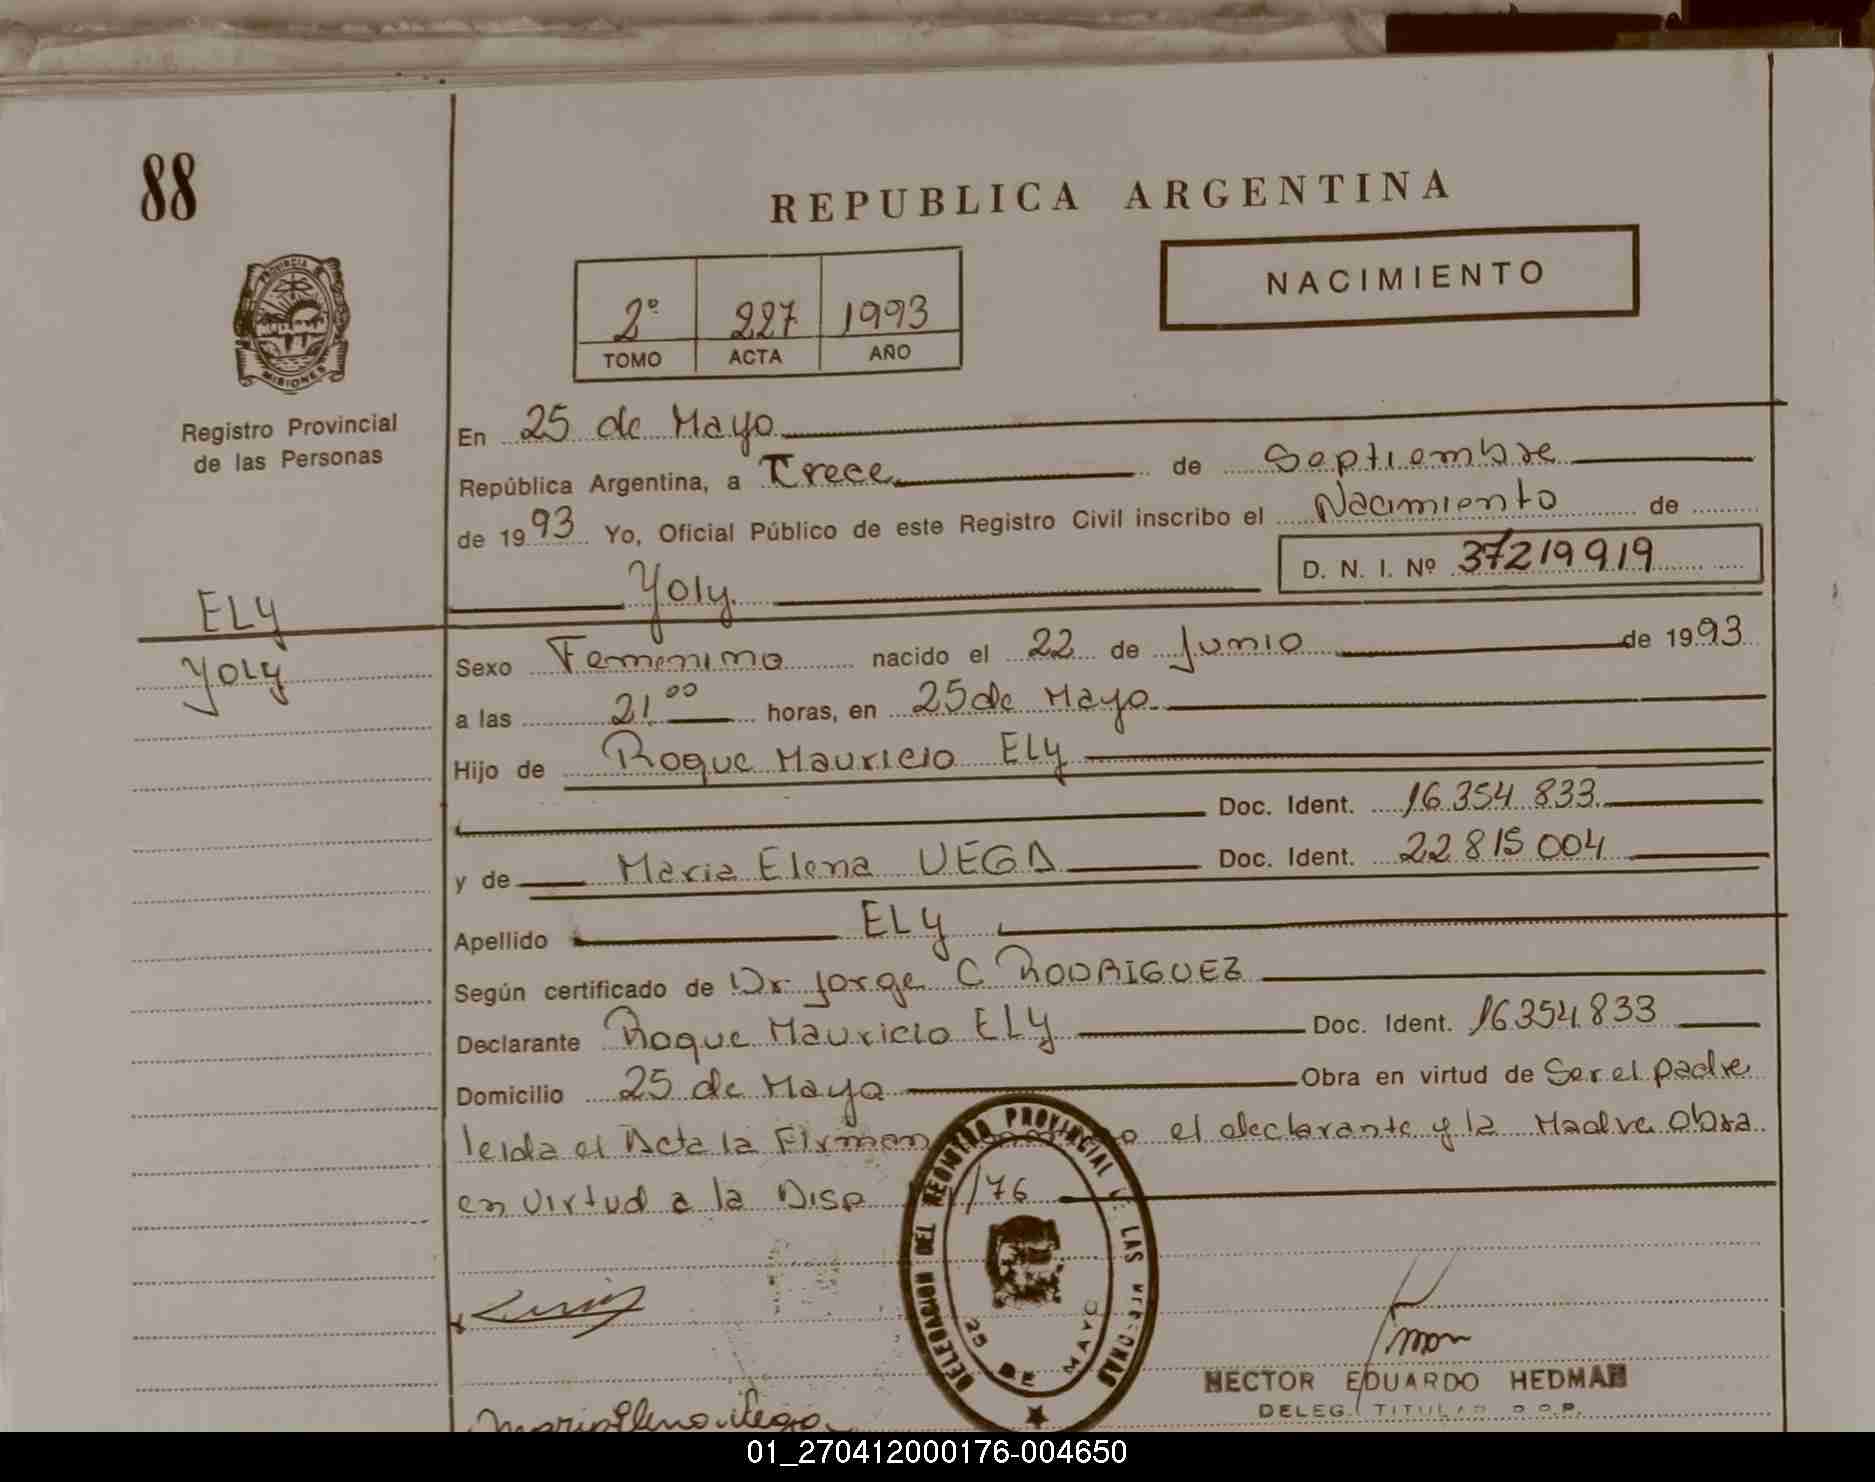 88
REPUBLICA ARGENTINA
NACIMIENTO
2º 227 1993
TOMO ACTA AÑO
PROVINCIA DE
MISIONES
Registro Provincial
de las Personas
En 25 de Mayo
República Argentina, a Trece de Septiembre
de 1993 Yo, Oficial Público de este Registro Civil inscribo el Nacimiento de
D. N. I. Nº 37219919
Yoly
ELY
Yoly
Sexo Femenino nacido el 22 de Junio de 1993
a las 21.00 horas, en 25 de Mayo
Hijo de Roque Mauricio ELy
Doc. Ident. 16.354.833
y de Maria Elena VEGA Doc. Ident. 22.815.004
Apellido ELy
Según certificado de Dr. Jorge C RODRIGUEZ
Declarante Roque Mauricio ELY Doc. Ident. 16354.833
Domicilio 25 de Mayo Obra en virtud de Ser el padre
leida el Acta la Firman el declarante y la Madre Obra
en virtud a la Disp /76
DELEGACION DEL REGISTRO PROVINCIAL DE LAS PERSONAS
25 DE MAYO
Maria Elena Vega
HECTOR EDUARDO HEDMAN
DELEG. TITULAR
01_270412000176-004650